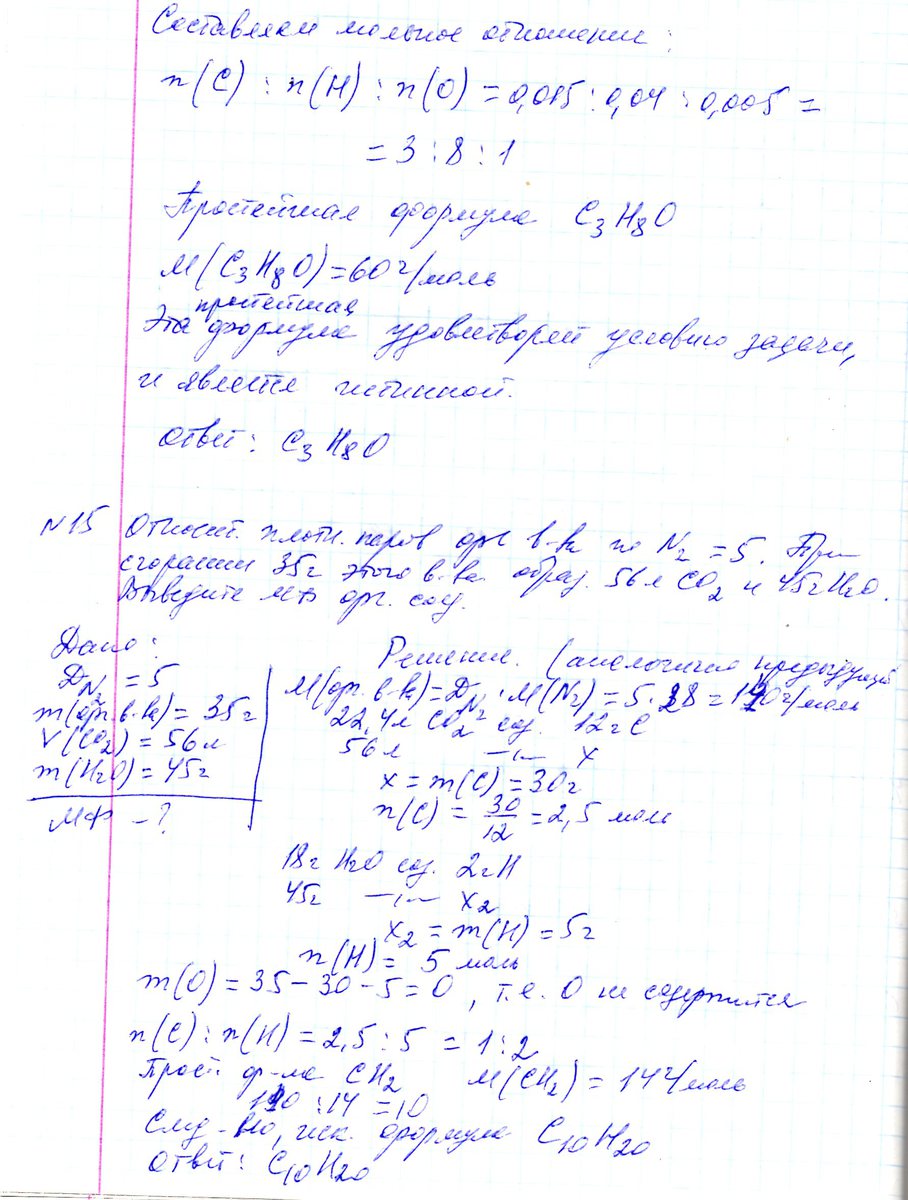 Составляем мольное отношение:
n(C) : n(H) : n(O) = 0,015 : 0,04 : 0,005 =
= 3 : 8 : 1
Простейшая формула C₃H₈O
M(C₃H₈O) = 60 г/моль
Эта простейшая формула удовлетворяет условию задачи,
и является истинной.
Ответ: C₃H₈O
N15 Относит. плотн. паров орг. в-ва по N₂ = 5. При
сгорании 35г этого в-ва образ. 56л CO₂ и 45г H₂O.
Выведите МФ орг. соед.
Дано:
D N₂ = 5
m(орг. в-ва) = 35г
V(CO₂) = 56л
m(H₂O) = 45г
МФ - ?
Решение. (аналогична предыдущей
M(орг. в-ва) = D N₂ · M(N₂) = 5 · 28 = 140 г/моль
22,4л CO₂ сод. 12г C
56л —"— x
x = m(C) = 30г
n(C) = 30/12 = 2,5 моль
18г H₂O сод. 2г H
45г —"— x₂
x₂ = m(H) = 5г
n(H) = 5 моль
m(O) = 35 - 30 - 5 = 0, т.е. O не содержится
n(C) : n(H) = 2,5 : 5 = 1 : 2
Прост. ф-ла CH₂ M(CH₂) = 14 г/моль
140 : 14 = 10
След-но, иск. формула C₁₀H₂₀
Ответ: C₁₀H₂₀